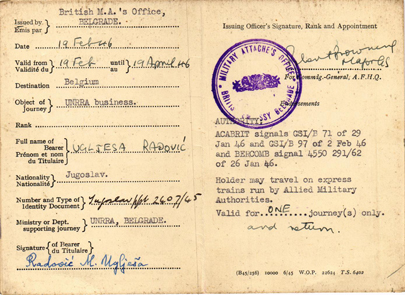 Issued by
Emis par
British M.A.'s Office,
BELGRADE.
Date 19 Feb 46
Valid from
Validité du
19 Feb
until
au
19 April 46
Destination Belgium
Object of
journey
UNRRA business.
Rank
Full name of
Bearer
Prénom et nom
du Titulaire
UGLJESA RADOVIĆ
Nationality
Nationalité
Jugoslav.
Number and Type of
Identity Document
2607/45
Ministry or Dept.
supporting journey
UNRRA, BELGRADE.
Signature
of Bearer
du Titulaire
Radović M. Uglješa
Issuing Officer's Signature, Rank and Appointment
For Commdg.-General, A.F.H.Q.
MILITARY ATTACHE'S OFFICE
BRITISH EMBASSY BELGRADE
Endorsements
AUTHORITY:
ACABRIT signals GSI/B 71 of 29
Jan 46 and GSI/B 97 of 2 Feb 46
and BEHCOMB signal 4550 291/62
of 26 Jan 46.
Holder may travel on express
trains run by Allied Military
Authorities.
Valid for ONE journey(s) only.
and return.
(B45/258) 10000 6/45 W.O.P. 22624 T.S. 6402